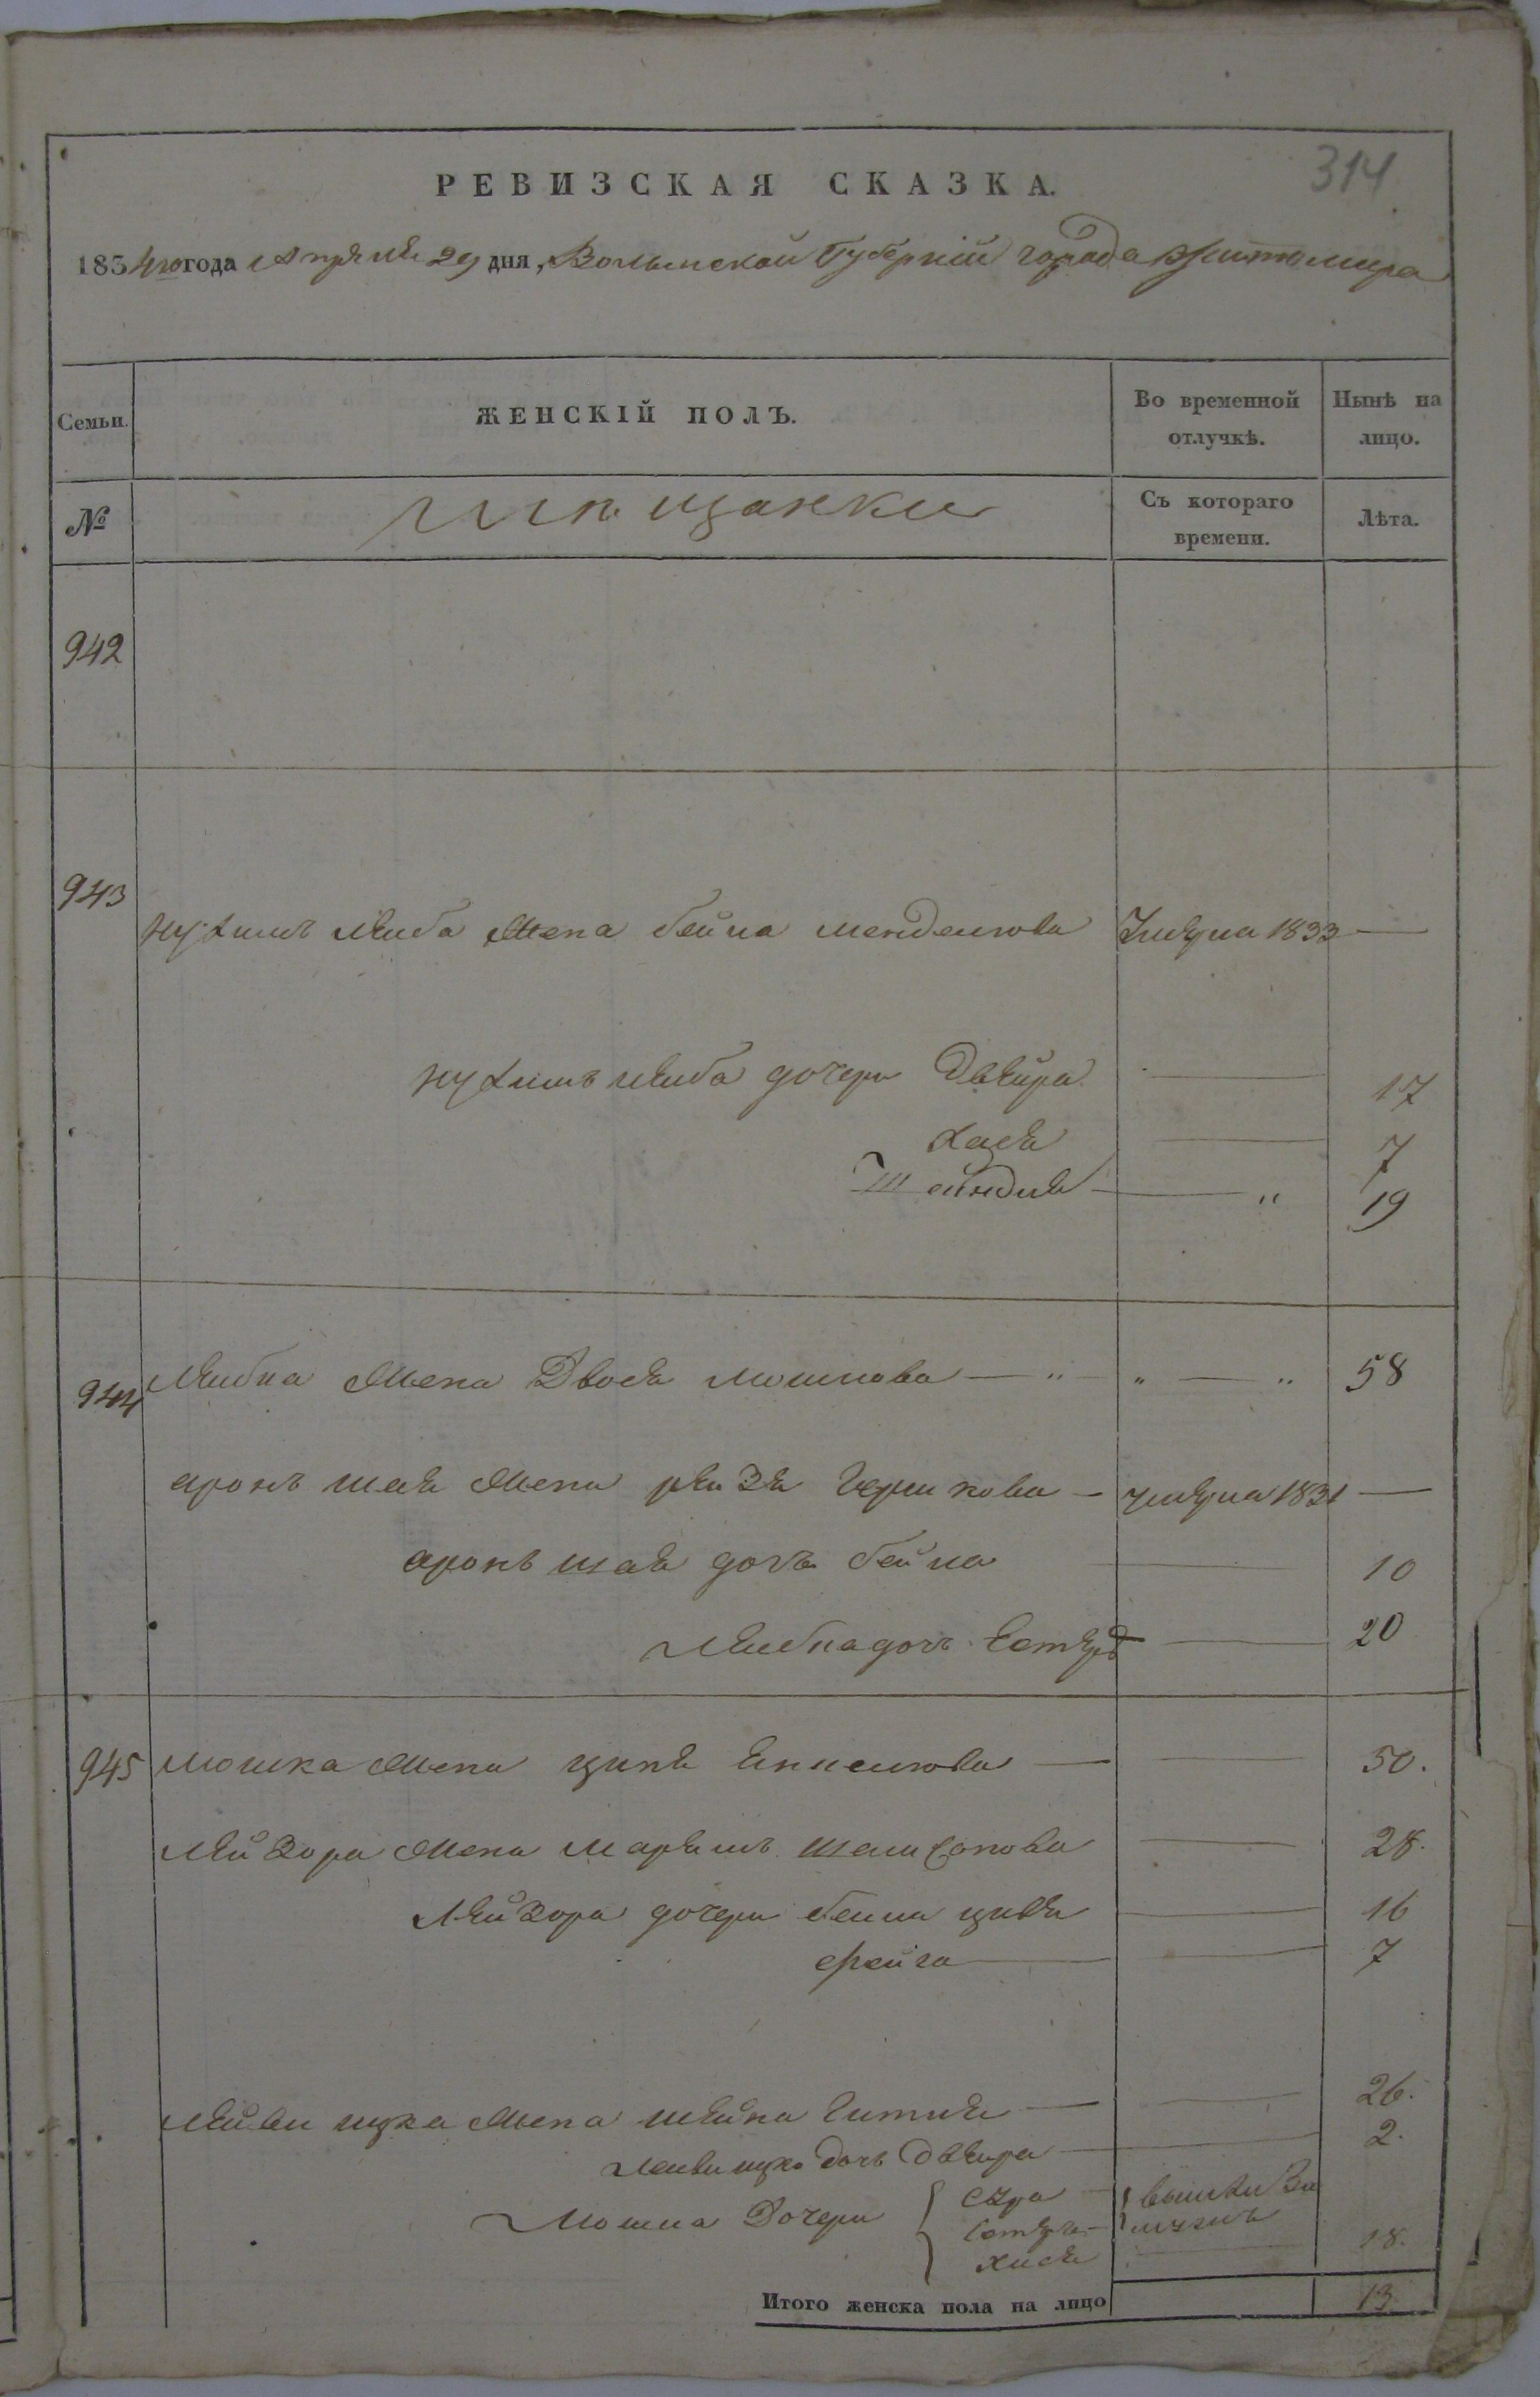 314
РЕВИЗСКАЯ СКАЗКА.
1834го года Апреля 29 дня, Волынской Губерніи города Житомира
Семьи. ЖЕНСКІЙ ПОЛЪ. Во временной отлучкѣ. Нынѣ на лицо.
№ Мещанки Съ котораго времени. Лѣта.
942
943
Нухимъ Лейба жена бейла менделiова умерла 1833 —
Нухимъ лейба дочери Двейра — 17
Хася — 7
Шейндля — " 19
944 Лейбка жена Двося мошкова — " " — " 58
аронъ шая жена рейзя Гершкова — умерла 1831 —
аронъ шая дочь бейла — 10
лейбка дочь Естеръ — 20
945 Мошка жена ципя — 50.
Лейзора жена Маріямъ Шамсонова — 28.
Лейзора дочери бейла цивя — 16
Фейга — 7
жена шейна Гитля — 26.
дочь Двейра — 2.
Мошка Дочери Сура — вышли за
Естеръ — мужъ
Хися — 18.
Итого женска пола на лицо 13.